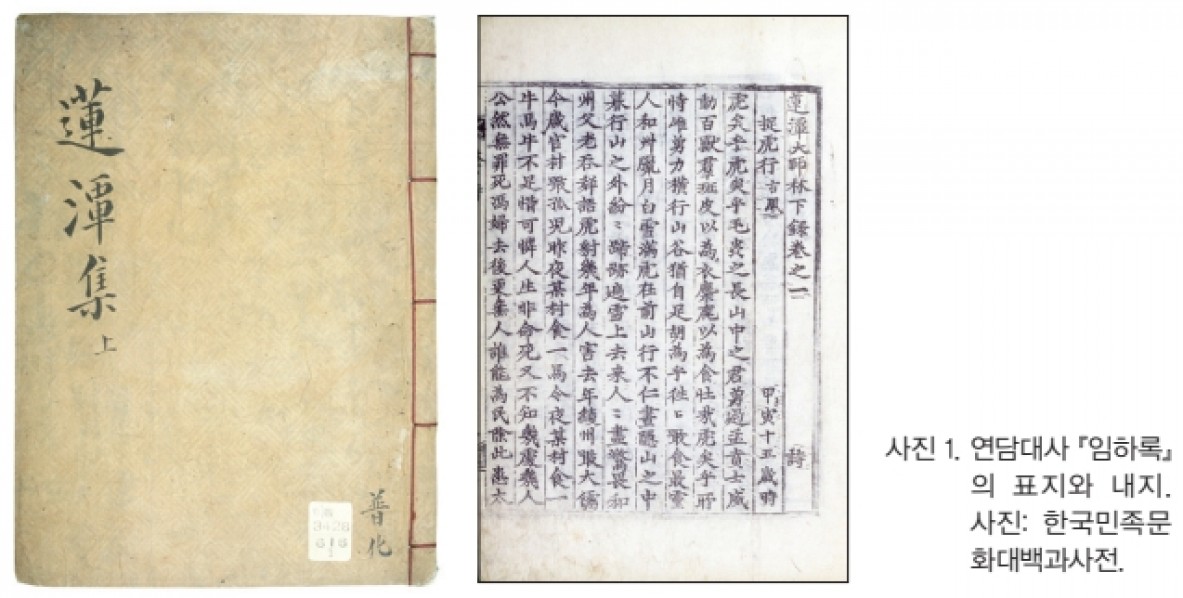 蓮潭集
上
普化
3428
蓮潭大師林下錄卷之一 詩
捉虎行 古風 甲寅十五歲時
虎矣乎虎矣乎毛炎之長山中之君勇過孟賁士威
動百獸羣斑皮以為衣麋鹿以為食壯哉虎矣乎所
恃雄勇力橫行山谷猶自足胡為乎往〻敢食最靈
人和州臘月白雪滿虎在前山行不仁晝隱山之中
暮行山之外紛〻蹄跡遍雪上去來人〻盡驚畏和
州父老吞聲語虎射幾年為人害去年綾州啖大儒
今歲官村啖孤兒昨夜某村食一馬今夜某村食一
牛馬牛不足惜可憐人生非命死又不知幾處幾人
公然無罪死馮婦去後更無人誰能為民除此患太
사진 1. 연담대사 『임하록』
의 표지와 내지.
사진: 한국민족문
화대백과사전.